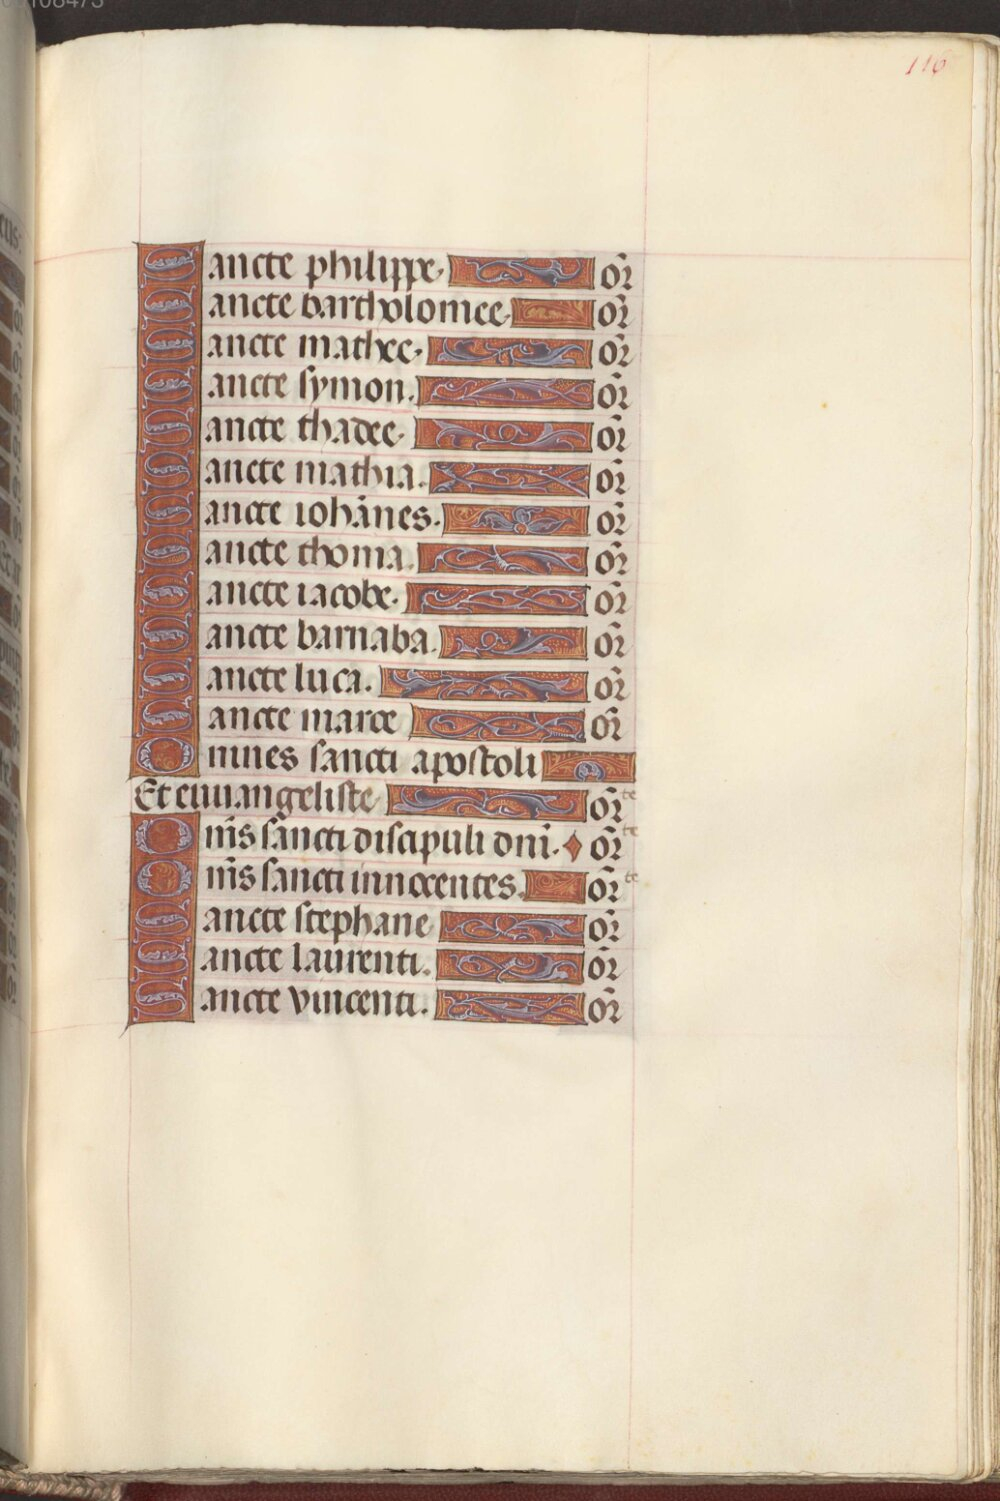 116
Sancte philippe. or̃
Sancte bartholomee. or̃
Sancte mathee. or̃
Sancte symon. or̃
Sancte thadee. or̃
Sancte mathia. or̃
Sancte iohãnes. or̃
Sancte thoma. or̃
Sancte iacobe. or̃
Sancte barnaba. or̃
Sancte luca. or̃
Sancte marce or̃
Omnes sancti apostoli
Et euuangeliste or̃ te
Om̃s sancti discipuli dnĩ. or̃ te
Om̃s sancti innocentes. or̃ te
Sancte stephane or̃
Sancte laurenti. or̃
Sancte vincenti. or̃